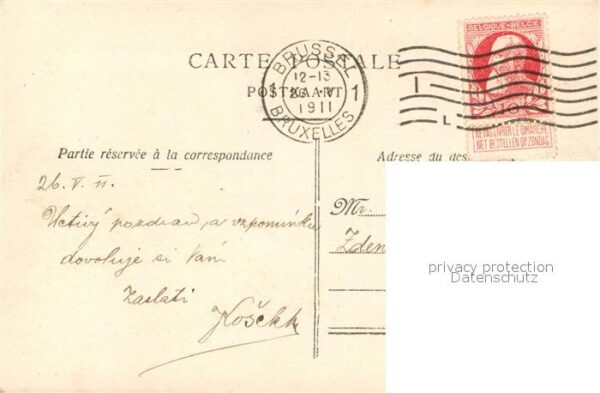 CARTE POSTALE
POSTKAART
BRUSSEL
1 1
12-13
26 V
1911
BRUXELLES
L
BELGIQUE·BELGIË
10
NE PAS LIVRER LE DIMANCHE
NIET BESTELLEN OP ZONDAG
Partie réservée à la correspondance
Adresse du des
26. V. 11.
Uctivý pozdrav, a vzpomínku
dovoluje si Vám
zaslati
Mr.
Zden
privacy protection
Datenschutz